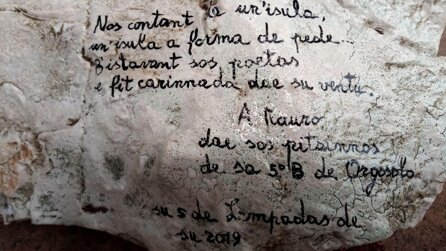 Nos contant de un'isula,
un'isula a forma de pede.
B'istavant sos poetas
e fit carinnada dae su ventu.
A
dae sos pitzinnos
de sa 5° B de Orgosolo
su 5 de Lampadas de
su 2019